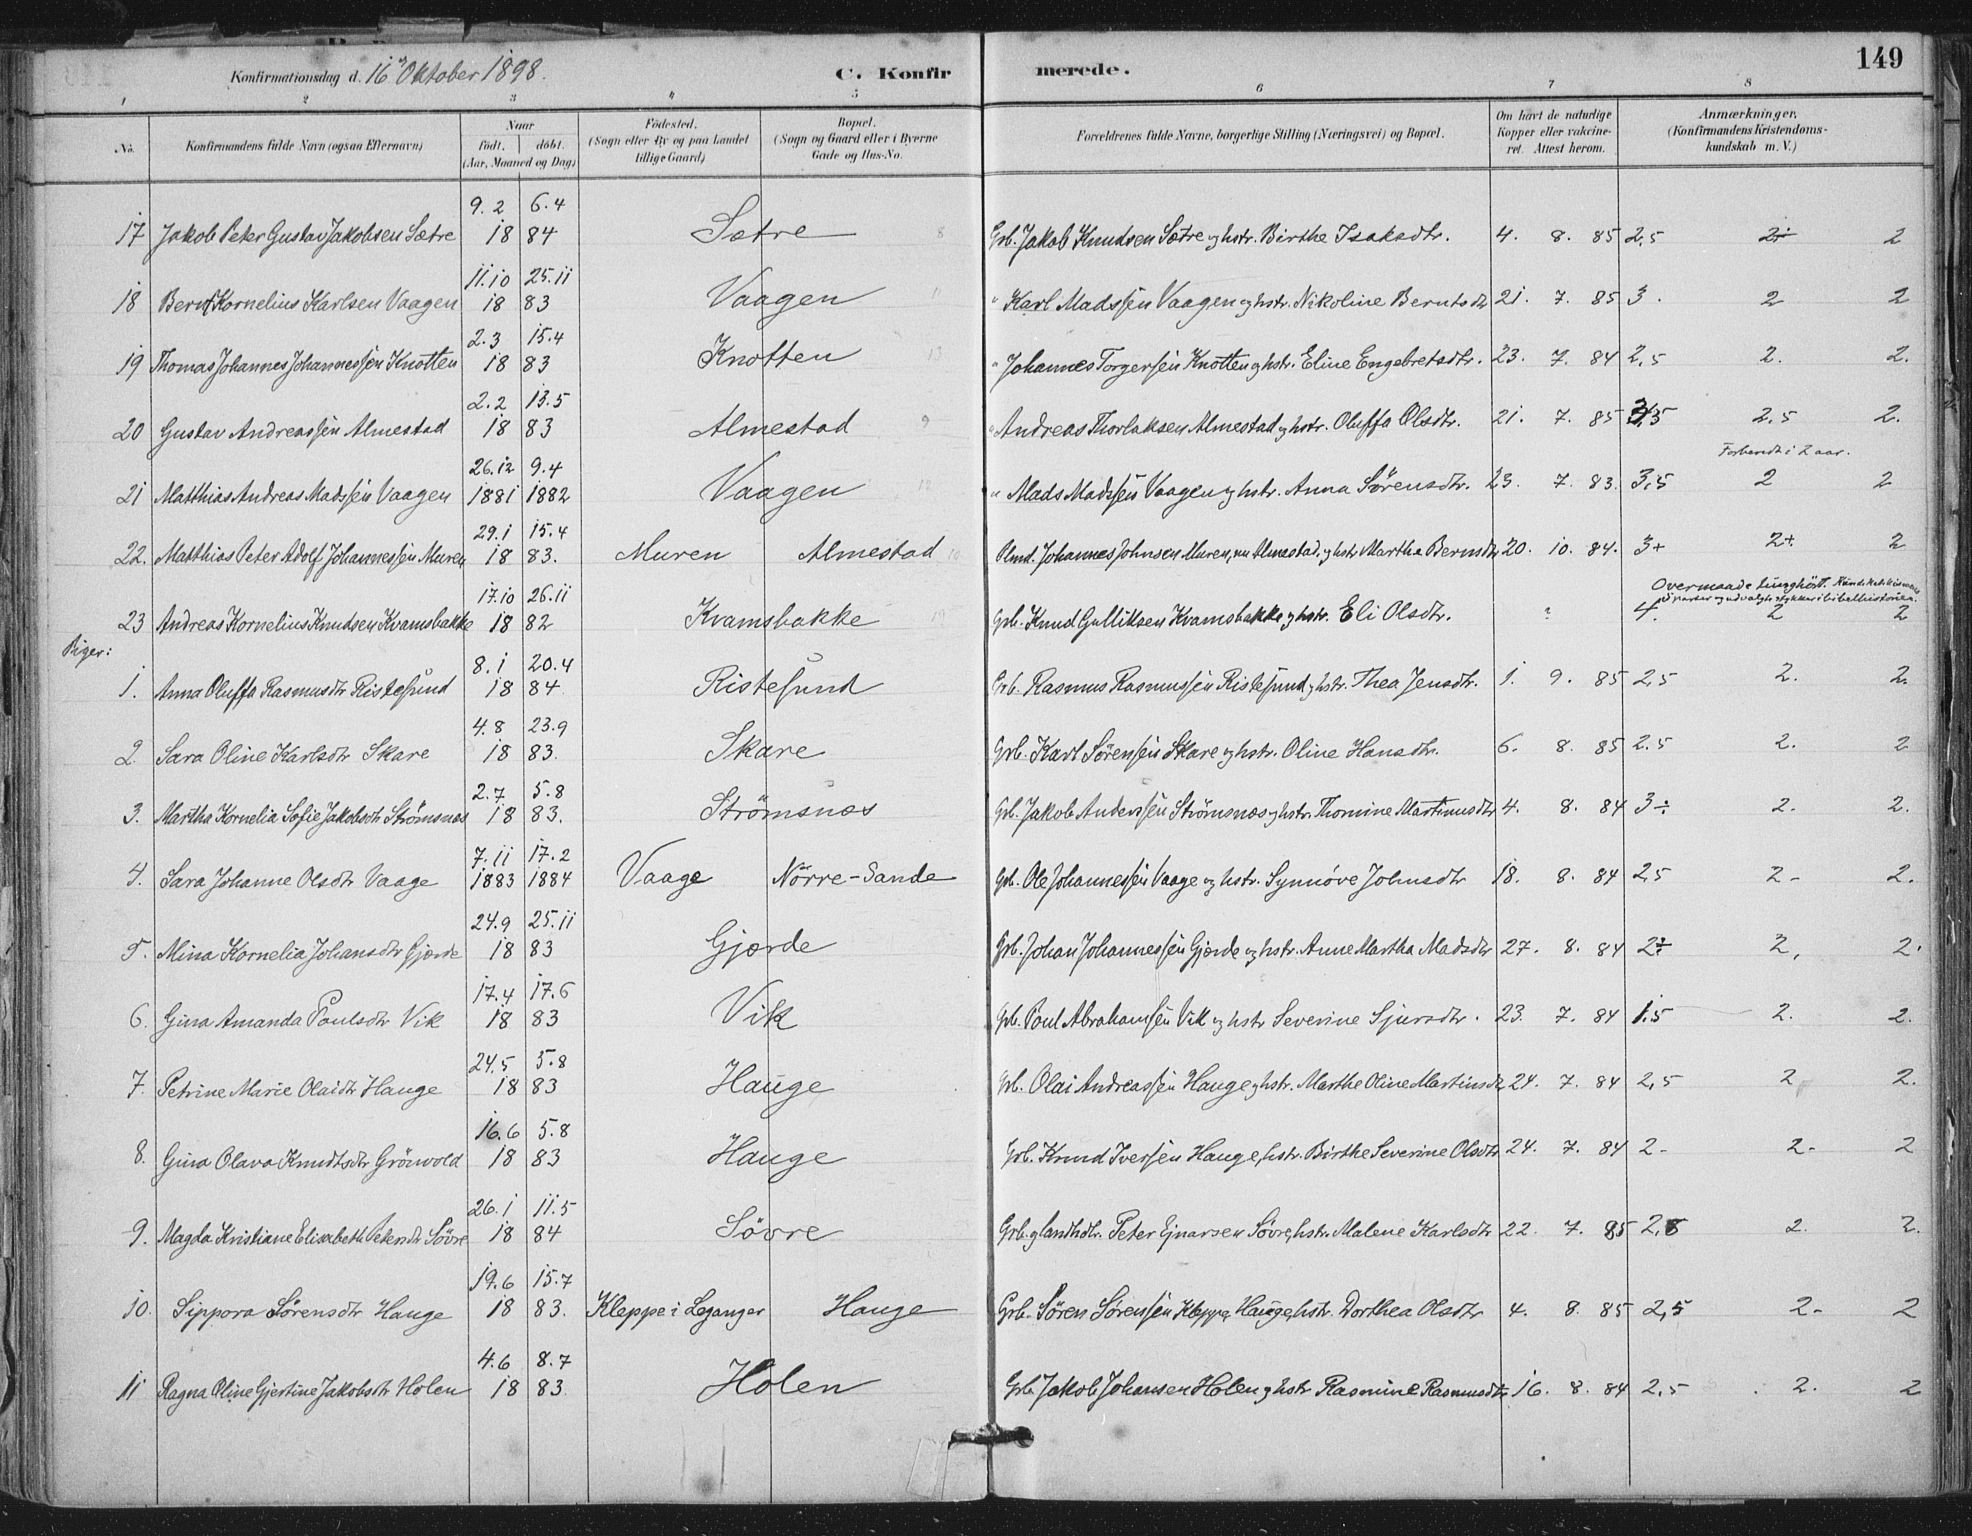 149
Konfirmationsdag d. 16de Oktober 1898. C. Konfirmerede.
1 2 3 4 5 6 7 8
No. Konfirmandens fulde Navn (ogsaa Efternavn) Naar født, døbt. (Aar, Maaned og Dag) Fødested. (Sogn eller By og paa Landet tillige Gaard) Bopæl. (Sogn og Gaard eller i Byerne Gade og Hus-No. Forældrenes fulde Navne, borgerlige Stilling (Næringsvei) og Bopæl. Om havt de naturlige Kopper eller vakcineret. Attest herom. Anmærkninger. (Konfirmandens Kristendomskundskab m. V.)
9.2 6.4
17 Jakob Peter Gustav Jakobsen Sætre 18 84 Sætre 8 Grb. Jakob Knudsen Sætre og hstr. Birthe Isaksdtr. 4. 8. 85 2,5 2÷ 2
11.10 25.11
18 Bernt Kornelius Karlsen Vaagen 18 83 Vaagen 11 " Karl Madssen Vaagen og hstr. Nikoline Berntsdtr 21. 7. 85 3. 2 2
2.3 15.4
19 Thomas Johannes Johannessen Knotten 18 83 Knotten 13 " Johannes Torgersen Knotten og hstr. Eline Engebretsdtr. 23. 7. 84 2,5 2. 2.
2.2 13.5
20 Gustav Andreassen Almestad 18 83 Almestad 9 " Andreas Thorlaksen Almestad og hstr. Oluffa Olsdtr. 21. 7. 85 3,5 2,5 2.
Forberedt i 2 aar.
26.12 9.4
21 Matthias Andreas Madssen Vaagen 1881 1882 Vaagen 12 " Mads Madssen Vaagen og hstr. Anna Sørensdtr. 23. 7. 83. 3,5 2 2
29.1 15.4
22. Matthias Peter Adolf Johannessen Muren 18 83. Muren Almestad 10 Olmd. Johannes Johnsen Muren, nu Almestad, og hstr Martha Berntsdtr 20. 10. 84. 3+ 2+ 2
Overmaade tunghørt.
17.10 26.11
23 Andreas Kornelius Knudsen Kvamsbakke 18 82 Kvamsbakke Grb. Knud Gulliksen Kvamsbakke og hstr. Eli Olsdtr. ? 4. 2 2
Piger:
8.1 20.4
1. Anna Oluffa Rasmusdtr Ristesund 18 84 Ristesund Grb. Rasmus Rasmussen Ristesund og hstr. Thea Jensdtr. 1. 9. 85 2,5 2. 2.
4.8 23.9
2. Sara Oline Karlsdtr Skare 18 83. Skare Grb. Karl Sørensen Skare og hstr. Oline Hansdtr. 6. 8. 85 2.5 2. 2
2.7 5.8
3. Martha Kornelia Sofie Jakobsdtr Strömsnæs 18 83. Strömsnæs Grb. Jakob Anderssen Strömsnæs og hstr. Thomine Martinusdtr 4. 8. 84 3÷ 2. 2.
7.11 17.2
4. Sara Johanne Olsdtr Vaage 1883 1884 Vaage Nörre-Sande Grb. Ole Johannessen Vaage og hstr. Synnöve Johnsdtr 18. 8. 84 2,5 2- 2.
24.9 25.11
5. Mina Kornelia Johansdtr Gjærde 18 83 Gjærde Grb. Johan Johannessen Gjærde og hstr. Anne Martha Madsdtr 27. 8. 84 2÷ 2, 2.
17.4 17.6
6. Gina Amanda Poulsdtr Vik 18 83 Vik Grb. Poul Abrahamsen Vik og hstr Severine Sjursdtr. 23. 7. 84 1.5 2. 2.
24.5 5.8
7. Petrine Marie Olaidtr Hauge 18 83 Hauge Grb. Olai Andreassen Hauge og hstr. Marthe Oline Martinsdtr 24. 7. 84 2,5 2 2.
16.6 5.8
8. Gina Olava Knudtsdtr Grönvold 18 83 Hauge Grb. Knud Iversen Hauge, hstr. Birthe Severine Olsdtr 24. 7. 84 2- 2- 2
26.1 11.5
9. Magda Kristiane Elisabeth Petersdtr Sövre 18 84 Sövre Grb. og landhdlr. Peter Ejnarsen Sövre, hstr. Malene Karlsdtr 22. 7. 85 2,5 2. 2.
19.6 15.7
10. Sippora Sörensdtr Hauge 18 83. Kleppe i Leganger Hauge Grb. Sören Sörenssen Kleppe, Hauge, hstr. Dorthea Olsdtr 4. 8. 85 2,5 2- 2
4.6 8.7
11 Ragna Oline Gjertine Jakobsdtr Holen 18 83 Holen Grb. Jakob Johansen Holen og hstr Rasmine Rasmusdtr 16. 8. 84 2,5 2. 2